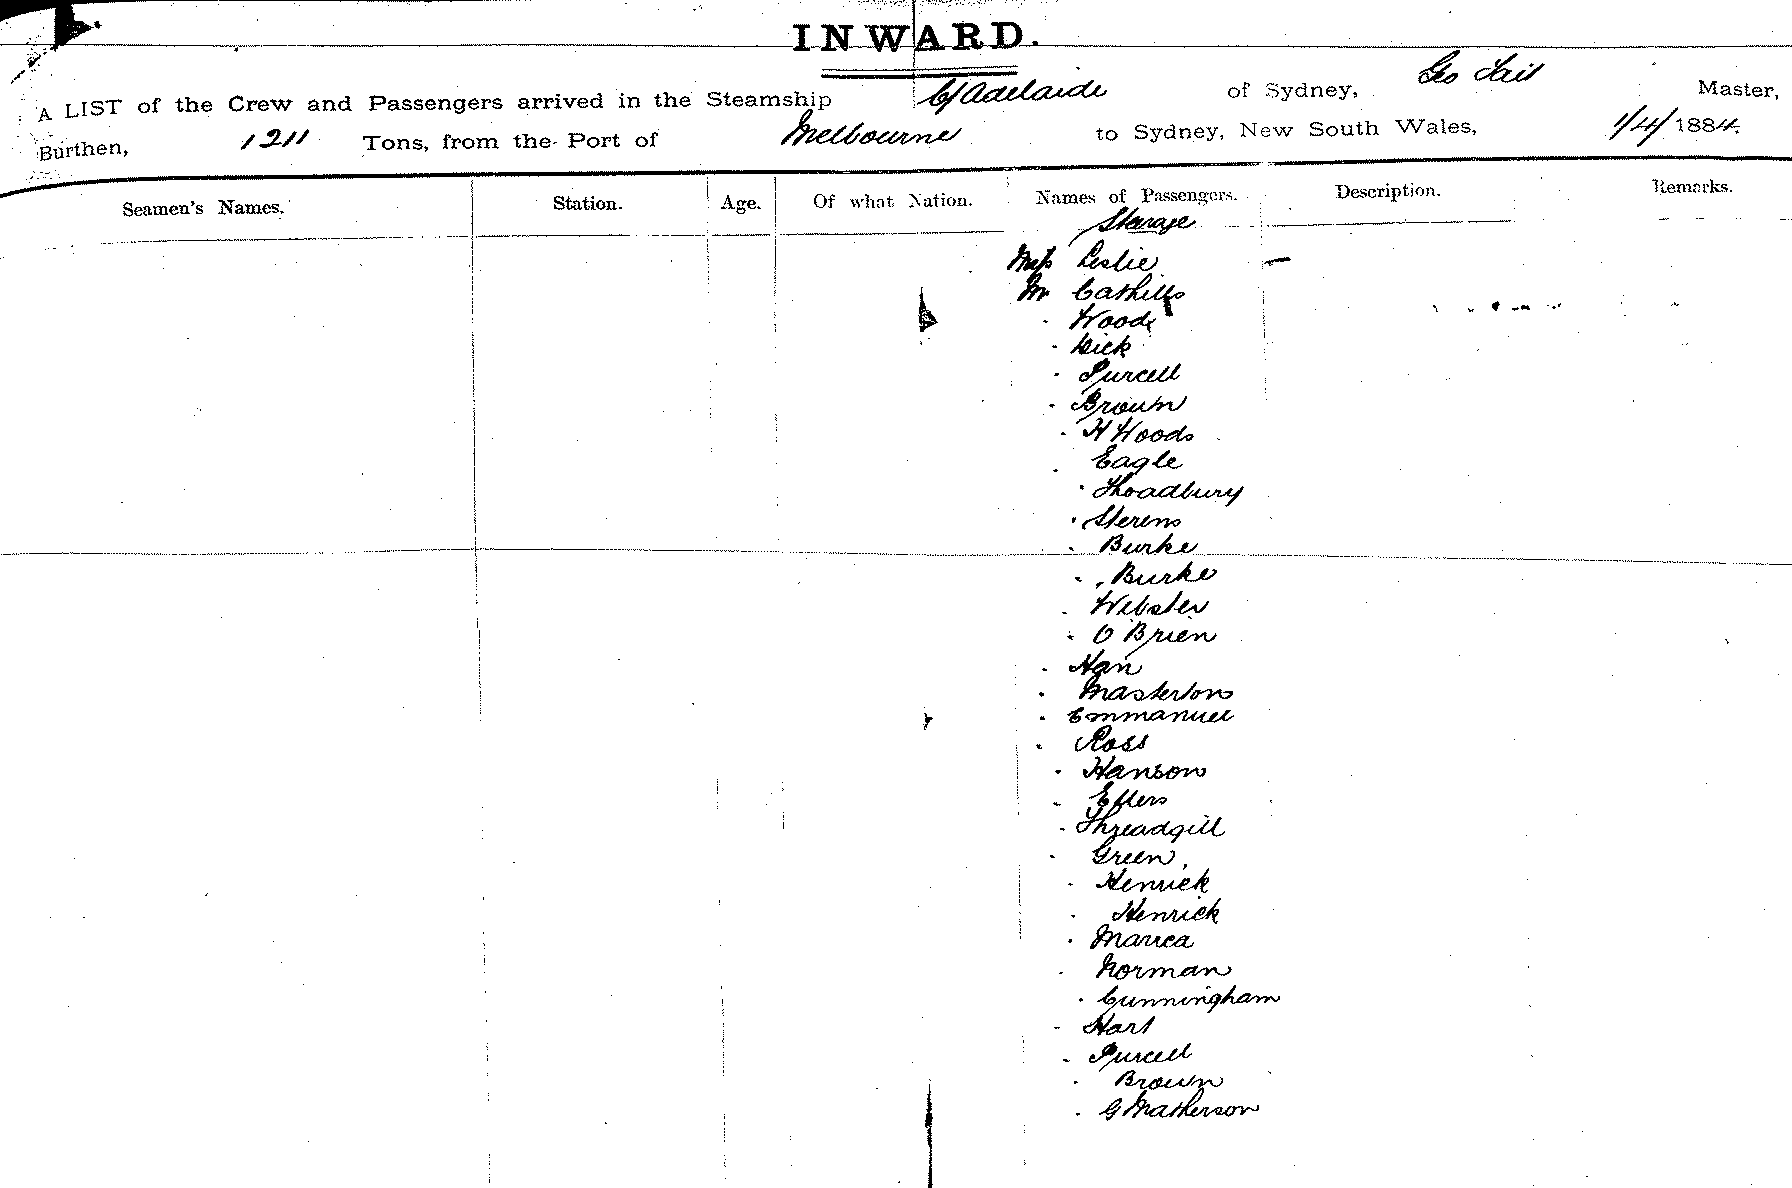 INWARD.
A LIST of the Crew and Passengers arrived in the Steamship C/Adelaide of Sydney, Geo Tait Master,
Burthen, 1211 Tons, from the Port of Melbourne to Sydney, New South Wales, 1/4/1884.
Seamen's Names. Station. Age. Of what Nation. Names of Passengers. Description. Remarks.
Sterage
Miss Leslie
Mr Cathills
Wood
Dick
Purcell
Brown
H Woods
Eagle
Thoadbury
Sterens
Burke
Burke
Webster
O'Brien
Han
Masterton
Emmanuel
Ross
Hanson
Threadgill
Green
Henrick
Henrick
Norman
Cunningham
Hart
Purcell
Brown
G Matherson